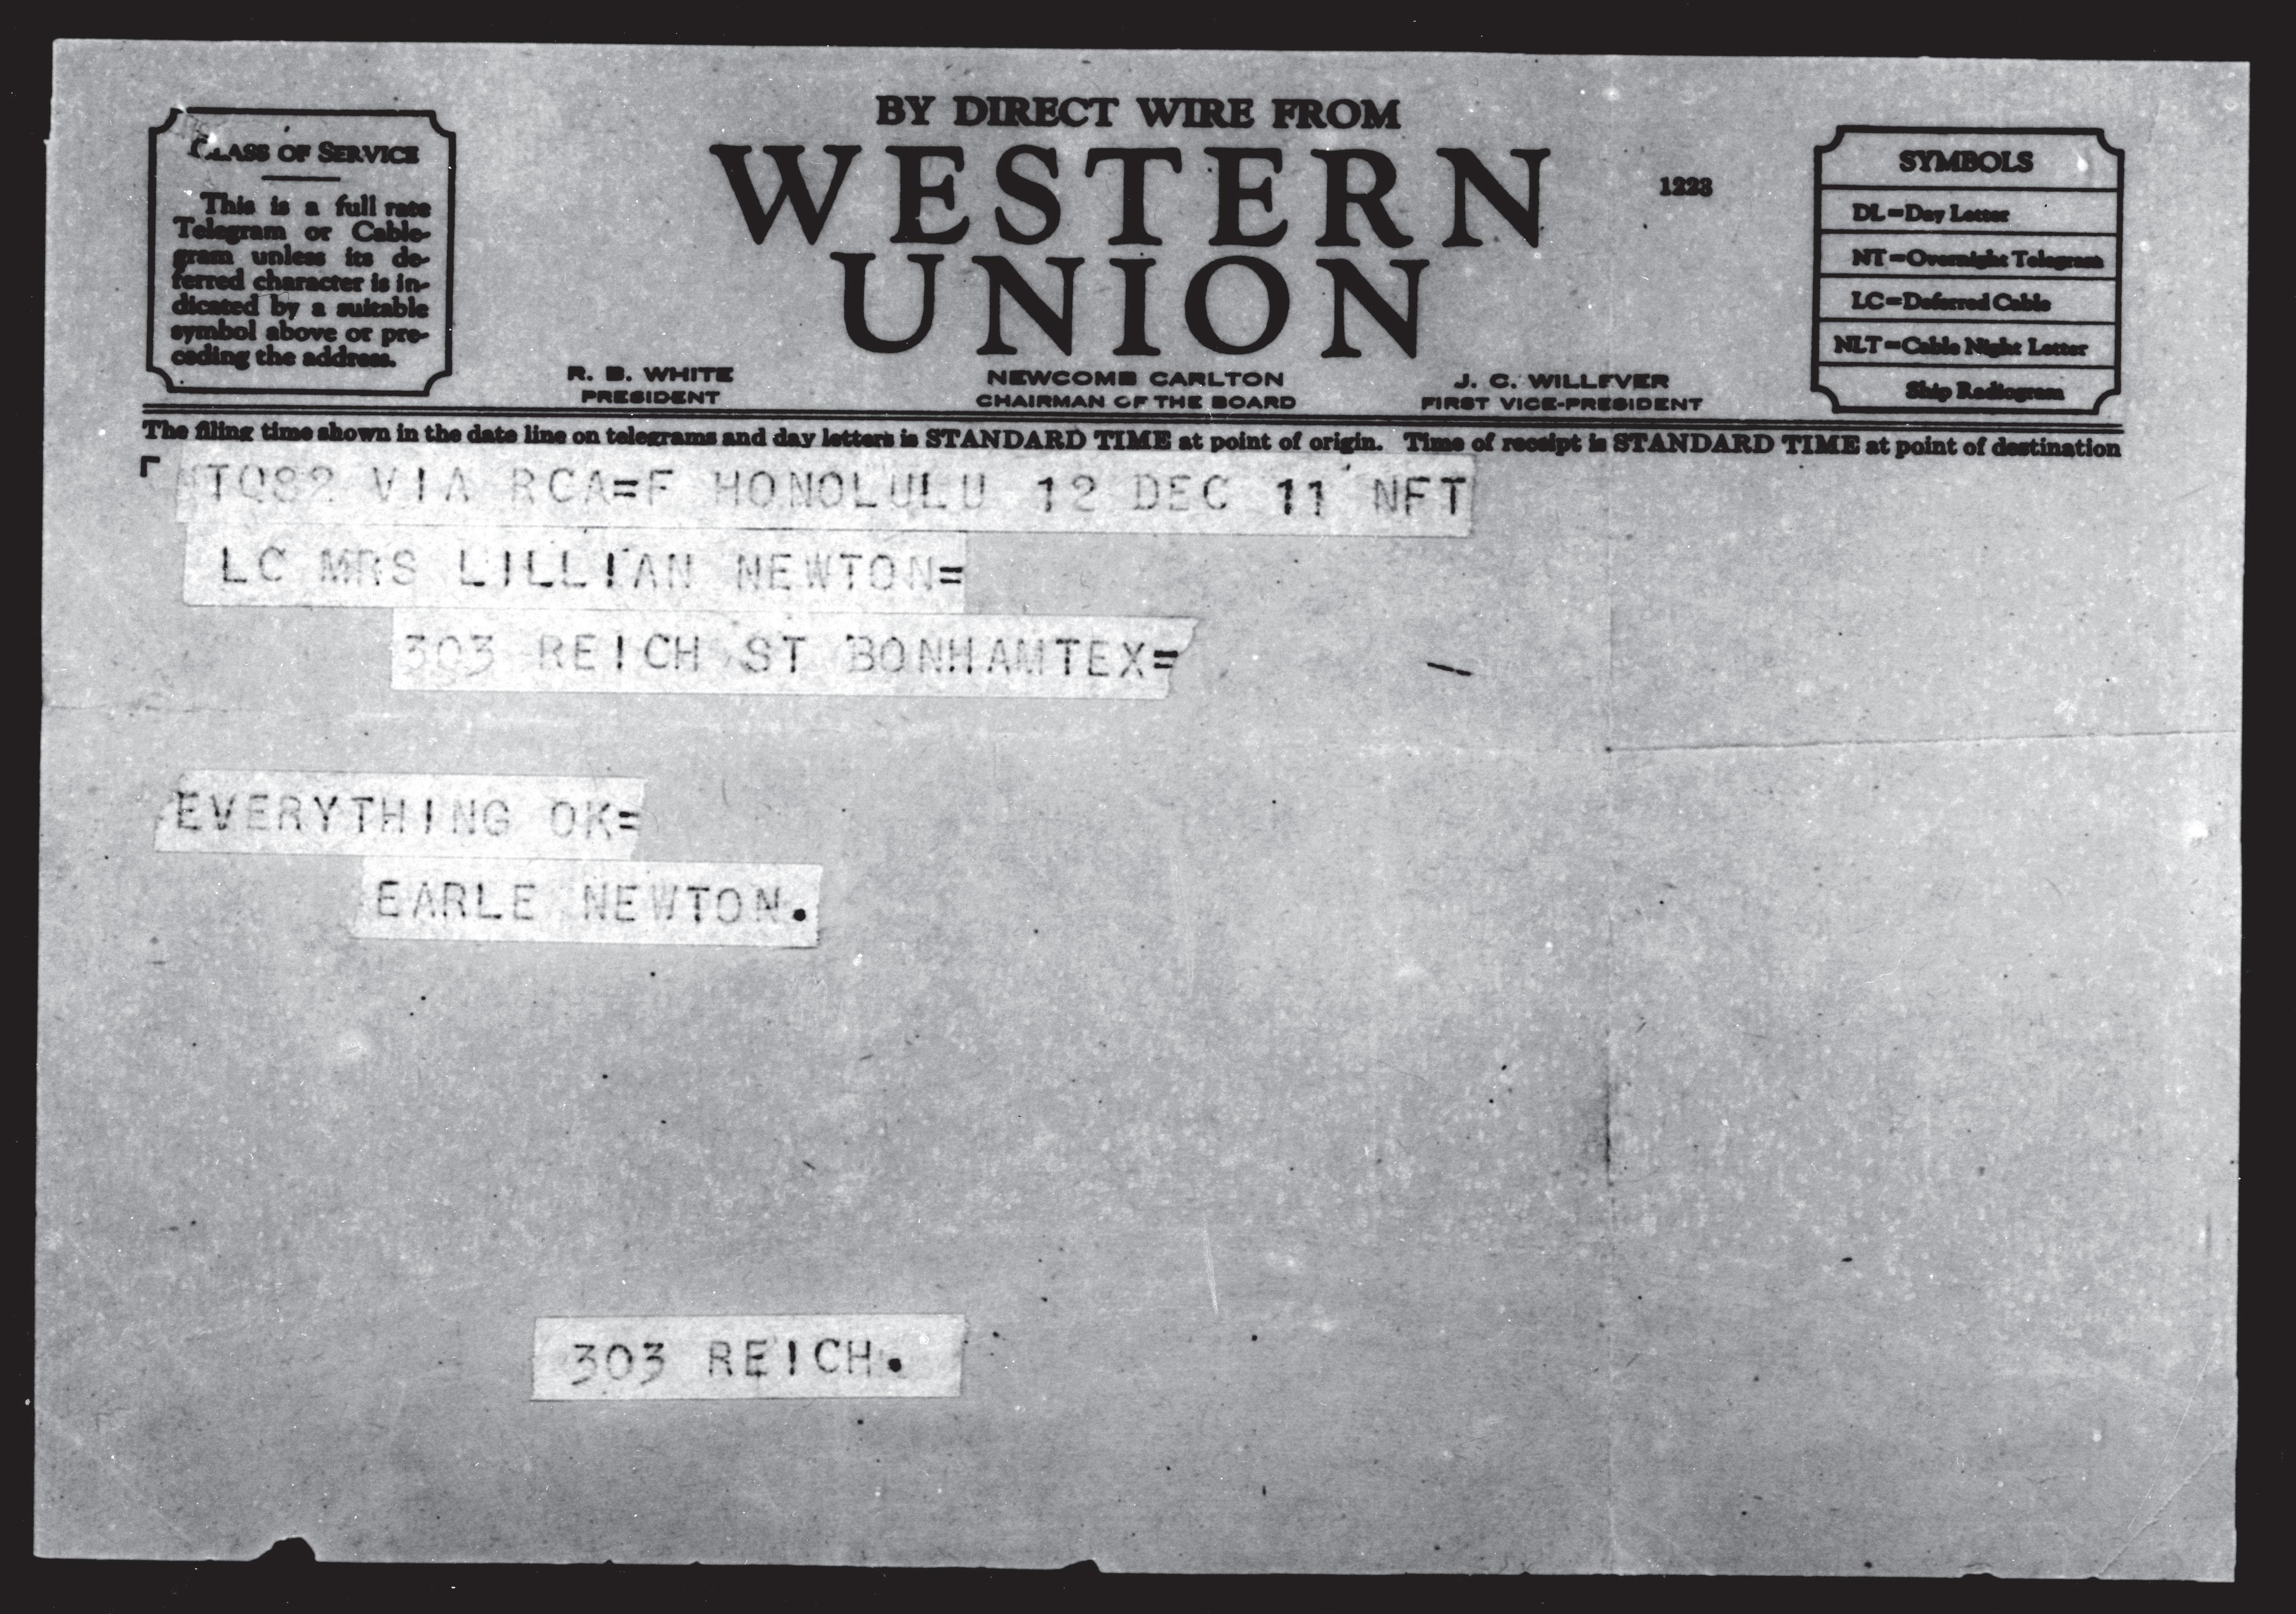 BY DIRECT WIRE FROM
WESTERN
UNION
1223
CLASS OF SERVICE
This is a full rate
Telegram or Cable-
gram unless its de-
ferred character is in-
dicated by a suitable
symbol above or pre-
ceding the address.
SYMBOLS
DL=Day Letter
NT=Overnight Telegram
LC=Deferred Cable
NLT=Cable Night Letter
Ship Radiogram
R. B. WHITE
PRESIDENT
NEWCOMB CARLTON
CHAIRMAN OF THE BOARD
J. C. WILLEVER
FIRST VICE-PRESIDENT
The filing time shown in the date line on telegrams and day letters is STANDARD TIME at point of origin. Time of receipt is STANDARD TIME at point of destination
VIA RCA=F HONOLULU 12 DEC 11 NFT
LC MRS LILLIAN NEWTON=
303 REICH ST BONHAMTEX=
EVERYTHING OK=
EARLE NEWTON.
303 REICH.